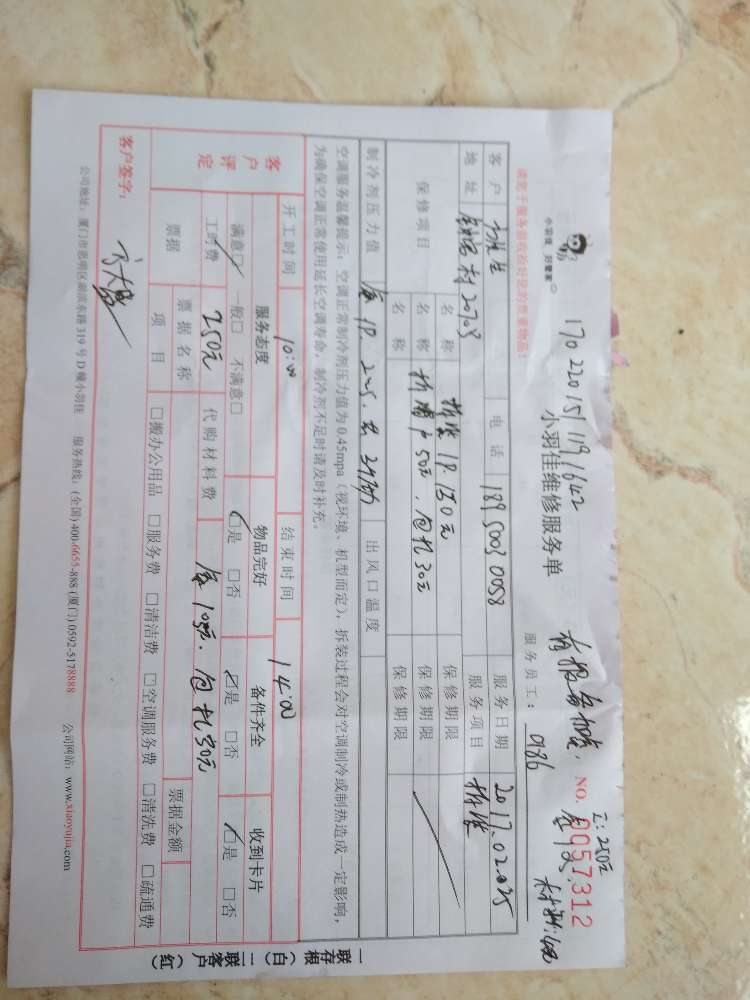 17022015119/1642
小羽佳 好管家
小羽佳维修服务单
NO. 0057312
请您于服务前收拾好您的贵重物品!
服务员工: 0986
客户 电话 18950030058 服务日期 2017.02.25
地址 2070号 服务项目 拆装
保修项目
名称 拆装1P.150元 保修期限
名称 拆滑P50元, 包扎30元 保修期限
名称 保修期限
制冷剂压力值 出风口温度
空调服务温馨提示: 空调正常制冷剂压力值为0.45mpa(视环境、机型而定), 拆装过程会对空调制冷或制热造成一定影响,
为确保空调正常使用延长空调寿命, 制冷剂不足时请及时补充。
开工时间 10:00 结束时间 14:00
客户评定
服务态度 物品完好 备件齐全 收到卡片
满意☑ 一般□ 不满意□ ☑是 □否 ☑是 □否 ☑是 □否
工时费 250元 代购材料费 包扎30元
票据 票据名称 票据金额
项目 □搬办公用品 □服务费 □清洁费 □空调服务费 □清洗费 □疏通费
客户签字:
公司地址: 厦门市思明区湖滨东路319号D幢小羽佳 服务热线: (全国)400-6655-888 (厦门)0592-5178888 公司网站: www.xiaoyujia.com
一联存根(白) 二联客户(红)